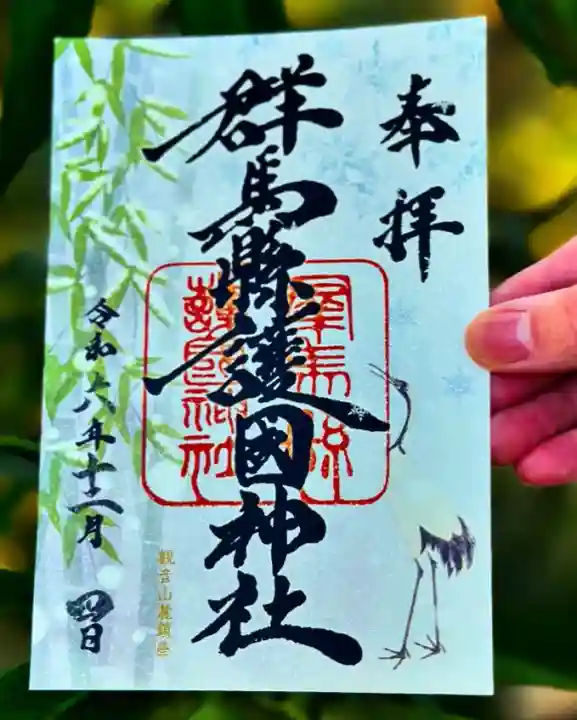 奉拝
群馬縣護國神社
群馬縣
護國神社
令和六年十二月
四日
観音山麓鎮座